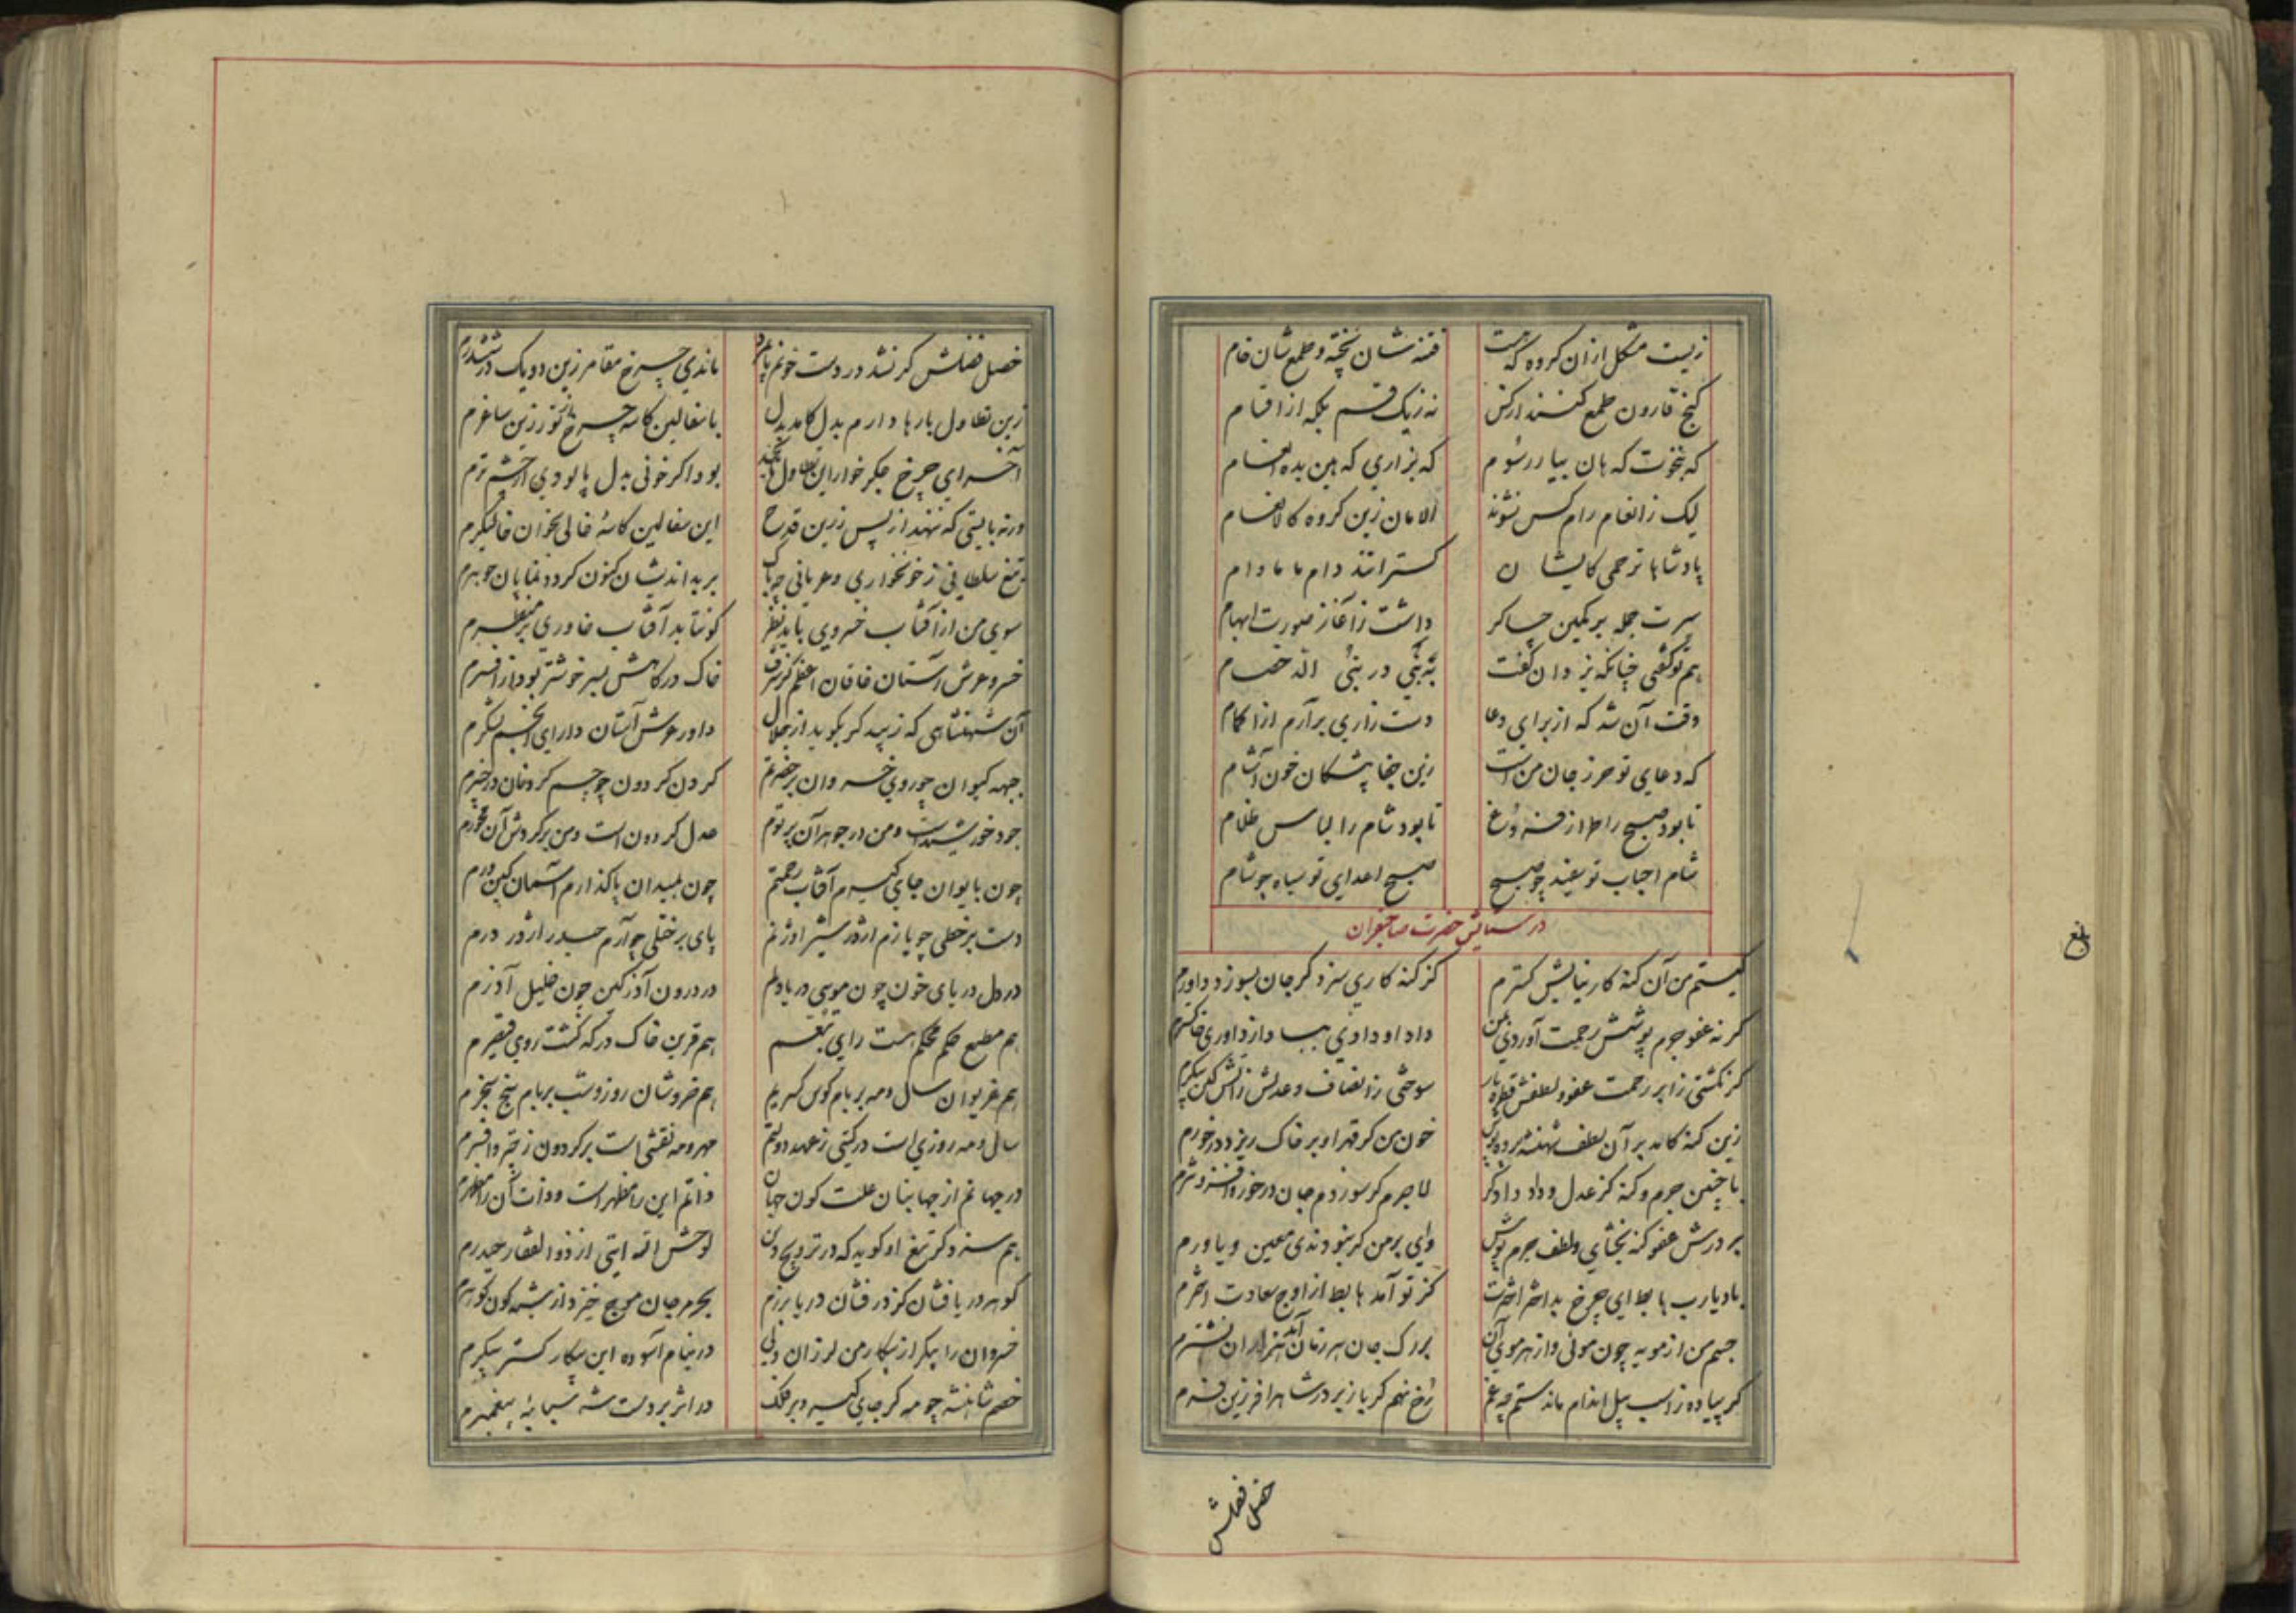 زیست مشکل ازان کروه که هست فتنه شان پخته و طمع شان خام
کنج قارون طمع کنند ار کس نه زیک قسم بلکه از اقسام
که بنخوت که هان بیار رسوم که بزاری که هین بده انعام
لیک ز انعام رام کس نشوند الامان زین کروه کالانعام
پادشاها ترحمی کایشان کسترانند دام ما مادام
سرت جمله بر کمین چاکر داشت ز آغاز صورت ابهام
هم تو کفتی چنانکه یزدان کفت الد خصام
وقت آن شد که از برای دعا دست زاری برآرم از اکمام
که دعای تو حرز جان من است زین جفا پیشکان خون آشام
تا بود صبح را طراز فروغ تا بود شام را لباس ظلام
شام احباب تو سفید چو صبح صبح اعدای تو سیاه چو شام
در ستایش حضرت صاحبقران
کیستم من آن کنه کار نیایش کسترم کز کنه کاری سزد کر جان بسوزد داورم
کر نه عفو جرم پوشش رحمت آوردی بمن داد او دادی بباد از داوری خاکسترم
کر نکشتی ز ابر رحمت عفو و لطفش قطره بار سوختی ز انصاف و عدلش ز آتش کین پیکرم
زین کنه کامد بر آن لطف شهنشه پرده پوش خون من کر قهر او بر خاک ریزد درخورم
با چنین جرم و کنه کز عدل و داد دادکر لاجرم کر سوزدم جان درخور افزونترم
بر درش عفو کنه بخشای و لطف جرم پوش وای بر من کر نبودندی معین و یاورم
باد یارب هابط ای چرخ بد اختر اخترت کز تو آمد هابط از اوج سعادت اخترم
جسم من از مویه چون موئی و از هر موی آن بر رک جان هر زمان آید هزاران نشترم
کر پیاده ز اسب پیل اندام ماندستم چه غم رخ نهم کر باز بر درشاه را فرزین فرم
خصل فضلش
خصل فضلش کر نشد در دست خونم پایمرد ماندی چرخ مقامر زین دو یک در ششدرم
زین تطاول بارها دارم بدل کامد بدل با سفالین کاسه چرخ زرین ساغرم
آخر ای چرخ جکر خوار این تطاول تا بچند بود اکر خونی بدل پالودی از چشم ترم
ورنه بایستی که ننهد از پس زرین قدح این سفالین کاسه خالی بخوان خالیکرم
تیغ سلطانی ز خونخواری و عریانی چه باک بر بد اندیشان کنون کردد نمایان جوهرم
سوی من از آفتاب خسروی باید نظر کو نتابد آفتاب خاوری بر منظرم
خسرو عرش آستان خاقان اعظم کز شرف خاک درکاهش بسر خوشتر بود از افسرم
آن شهنشاهی که زیبد کر بکوید از جلال داور عرش آستان دارای انجم لشکرم
جبهه کیوان چو روی خسروان بر حضرتم کردن کردون چو جسم کردنان در چنبرم
جود خورشیدست و من در جوهر آن پرتوم عدل کردون است و من بر کردش آن محورم
چون بایوان جای کیرم آفتاب رحمتم چون بمیدان پا کذارم آسمان کین درم
دست بر خطی چو یازم اژدر شیر اوژنم پای بر ختلی چو آرم حیدر اژدر درم
در دل دریای خون چون موسی دریا دلم در درون آذر کین چون خلیل آذرم
هم مطیع حکم محکم هست رای هم قرین خاک درکه کشت روی قیصرم
هم غریوان سال و مه بر بام کوس کسریم هم خروشان روز و شب بر بام پنج سنجرم
سال و مه روزی است در کیتی ز عهد دولتم مهر و مه نقشی است بر کردون ز تخت و افسرم
در جهانم از جهانبنان علت کون جهان ذاتم این را مظهر است و ذات آن را مظهرم
هم سزد کر تیغ او کوید که در ترویج دین لوحش الله ایتی از ذوالفقار حیدرم
کوهر دریا فشان کز در فشان دریا برزم بحر مرجان موج خیزد از
خسروان را پیکر از پیکار من لرزان ولی در نیام آسوده این پیکار کستر پیکرم
خصم شاهنشه چو مه کر جای کیرد بر فلک در اثر بر دست شه سبابه پیغمبرم
بلغ